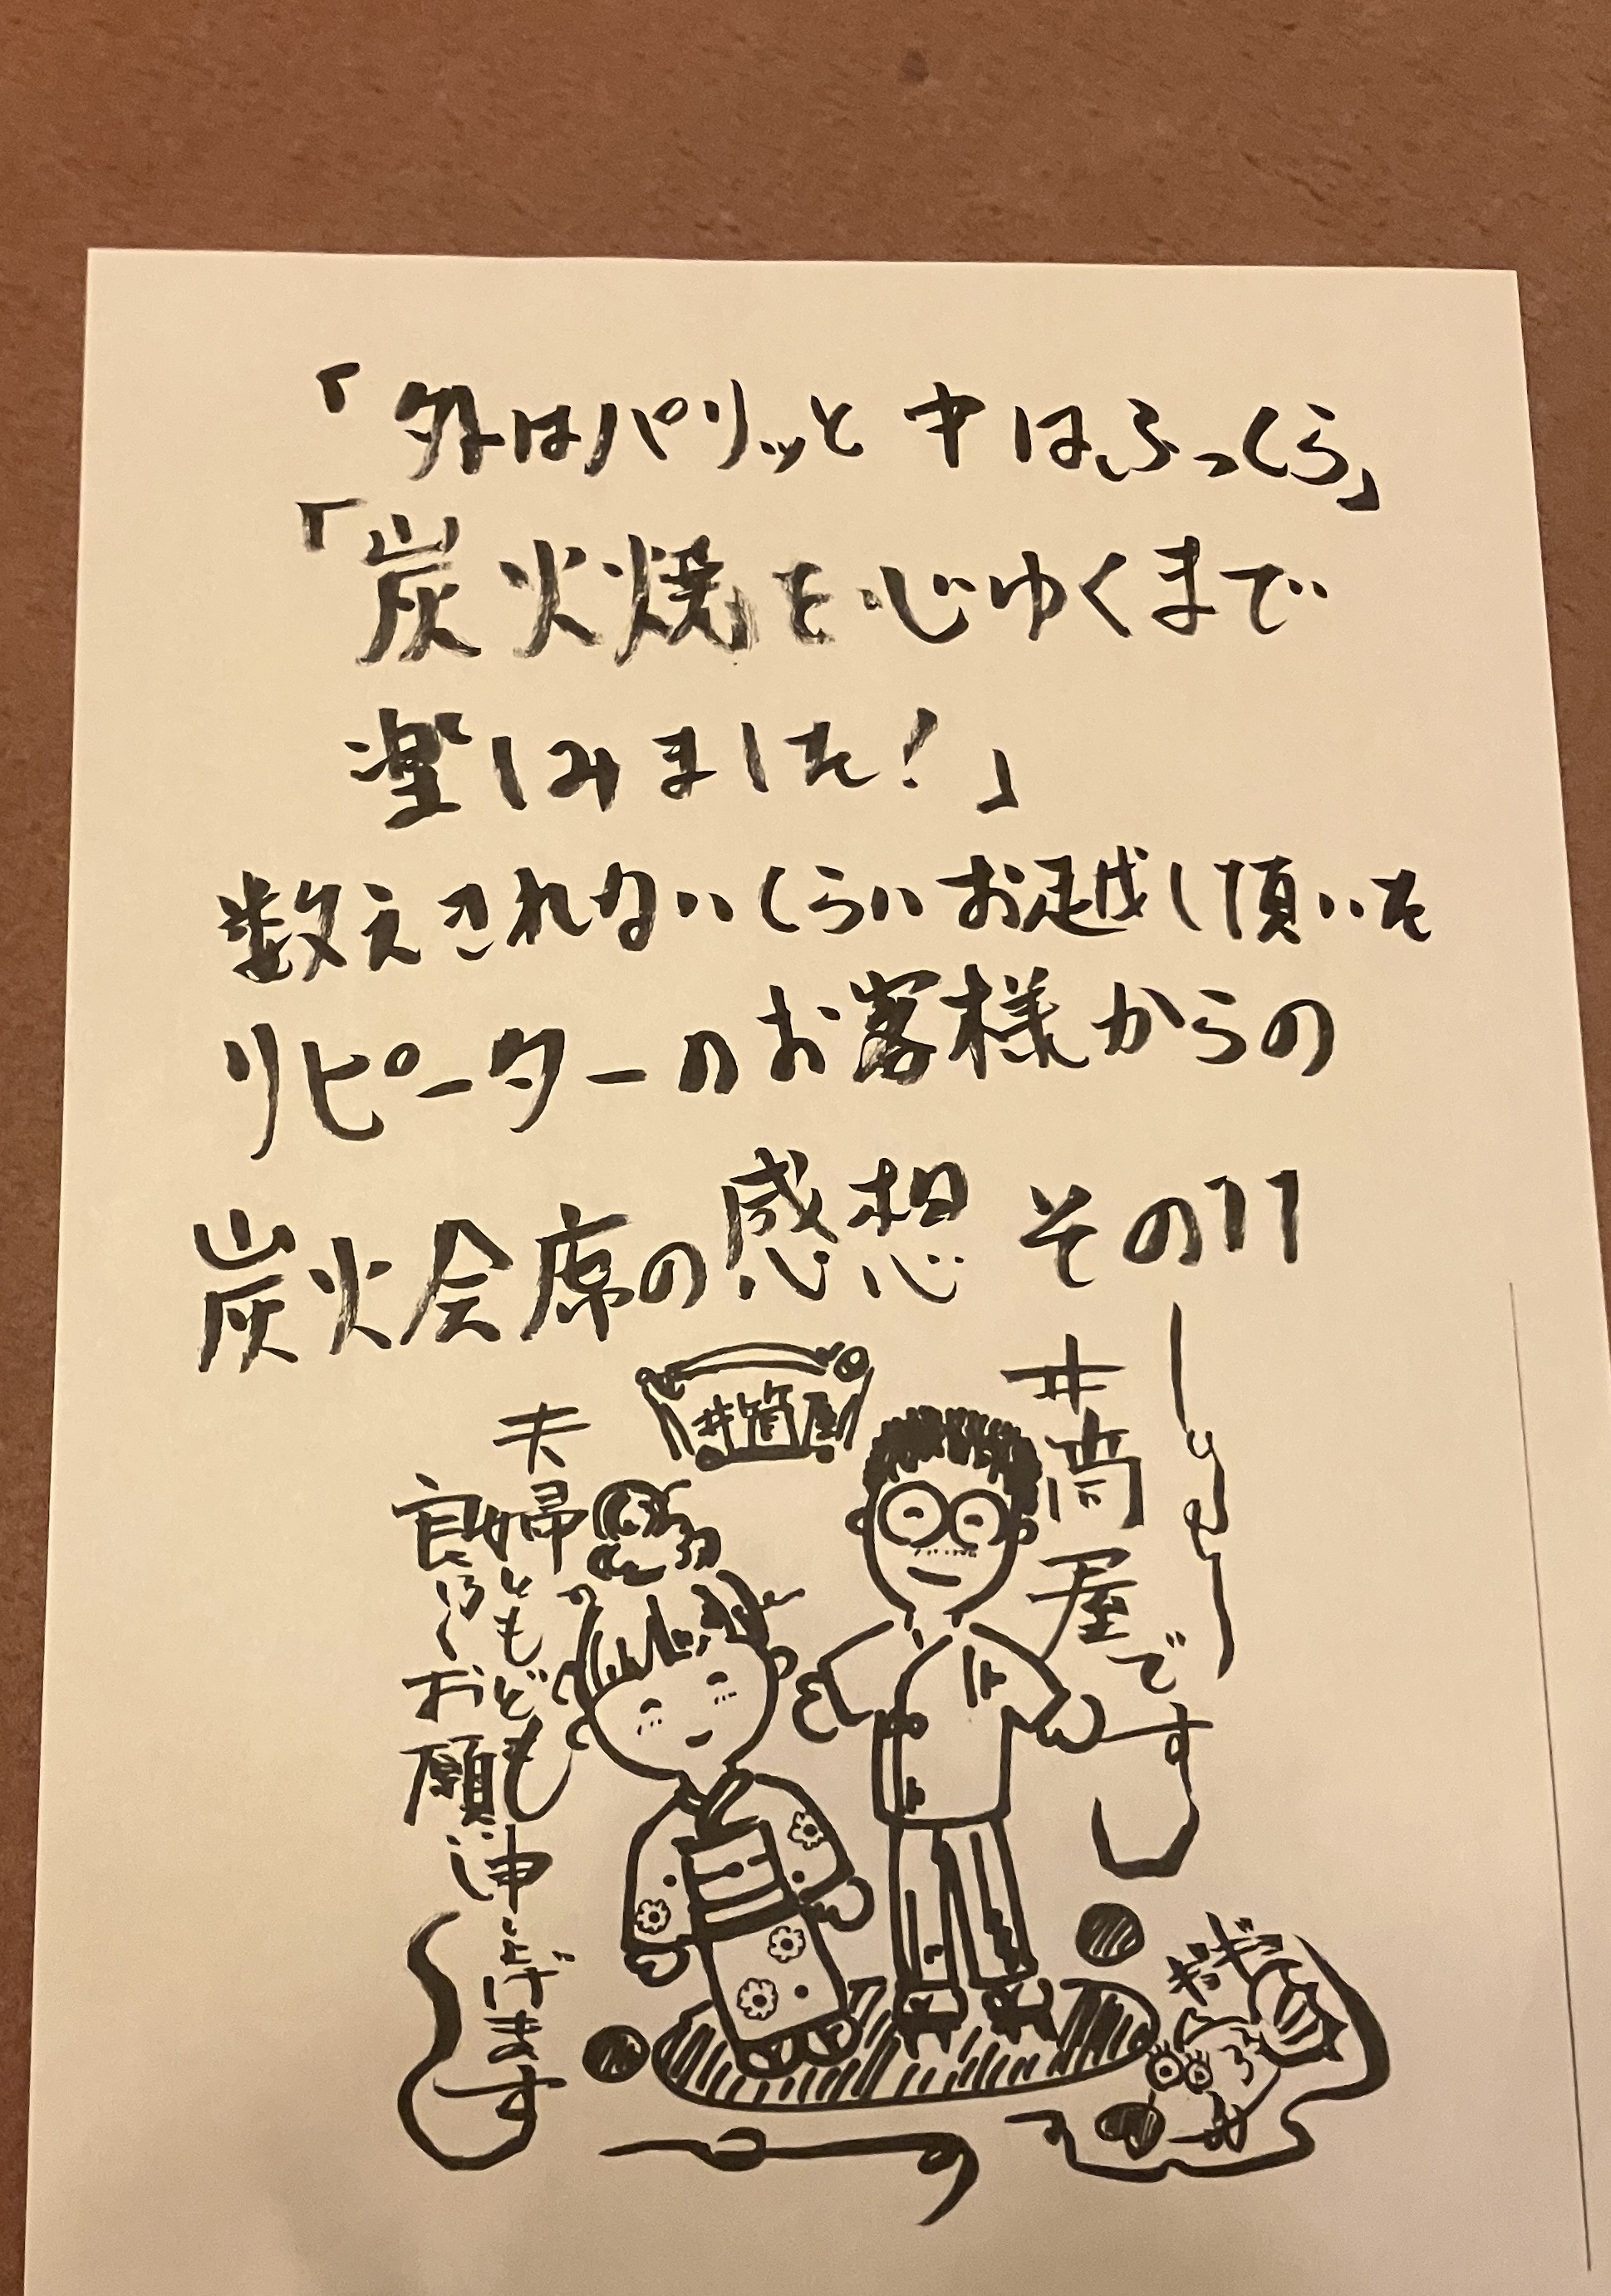 「外はパリッと中はふっくら」
「炭火焼を心ゆくまで
楽しみました！」
数えきれないくらいお越し頂いた
リピーターのお客様からの
炭火会席の感想 その11
井筒屋
井筒屋です
夫婦ともども
良ろしくお願い申し上げます
ギョギョ